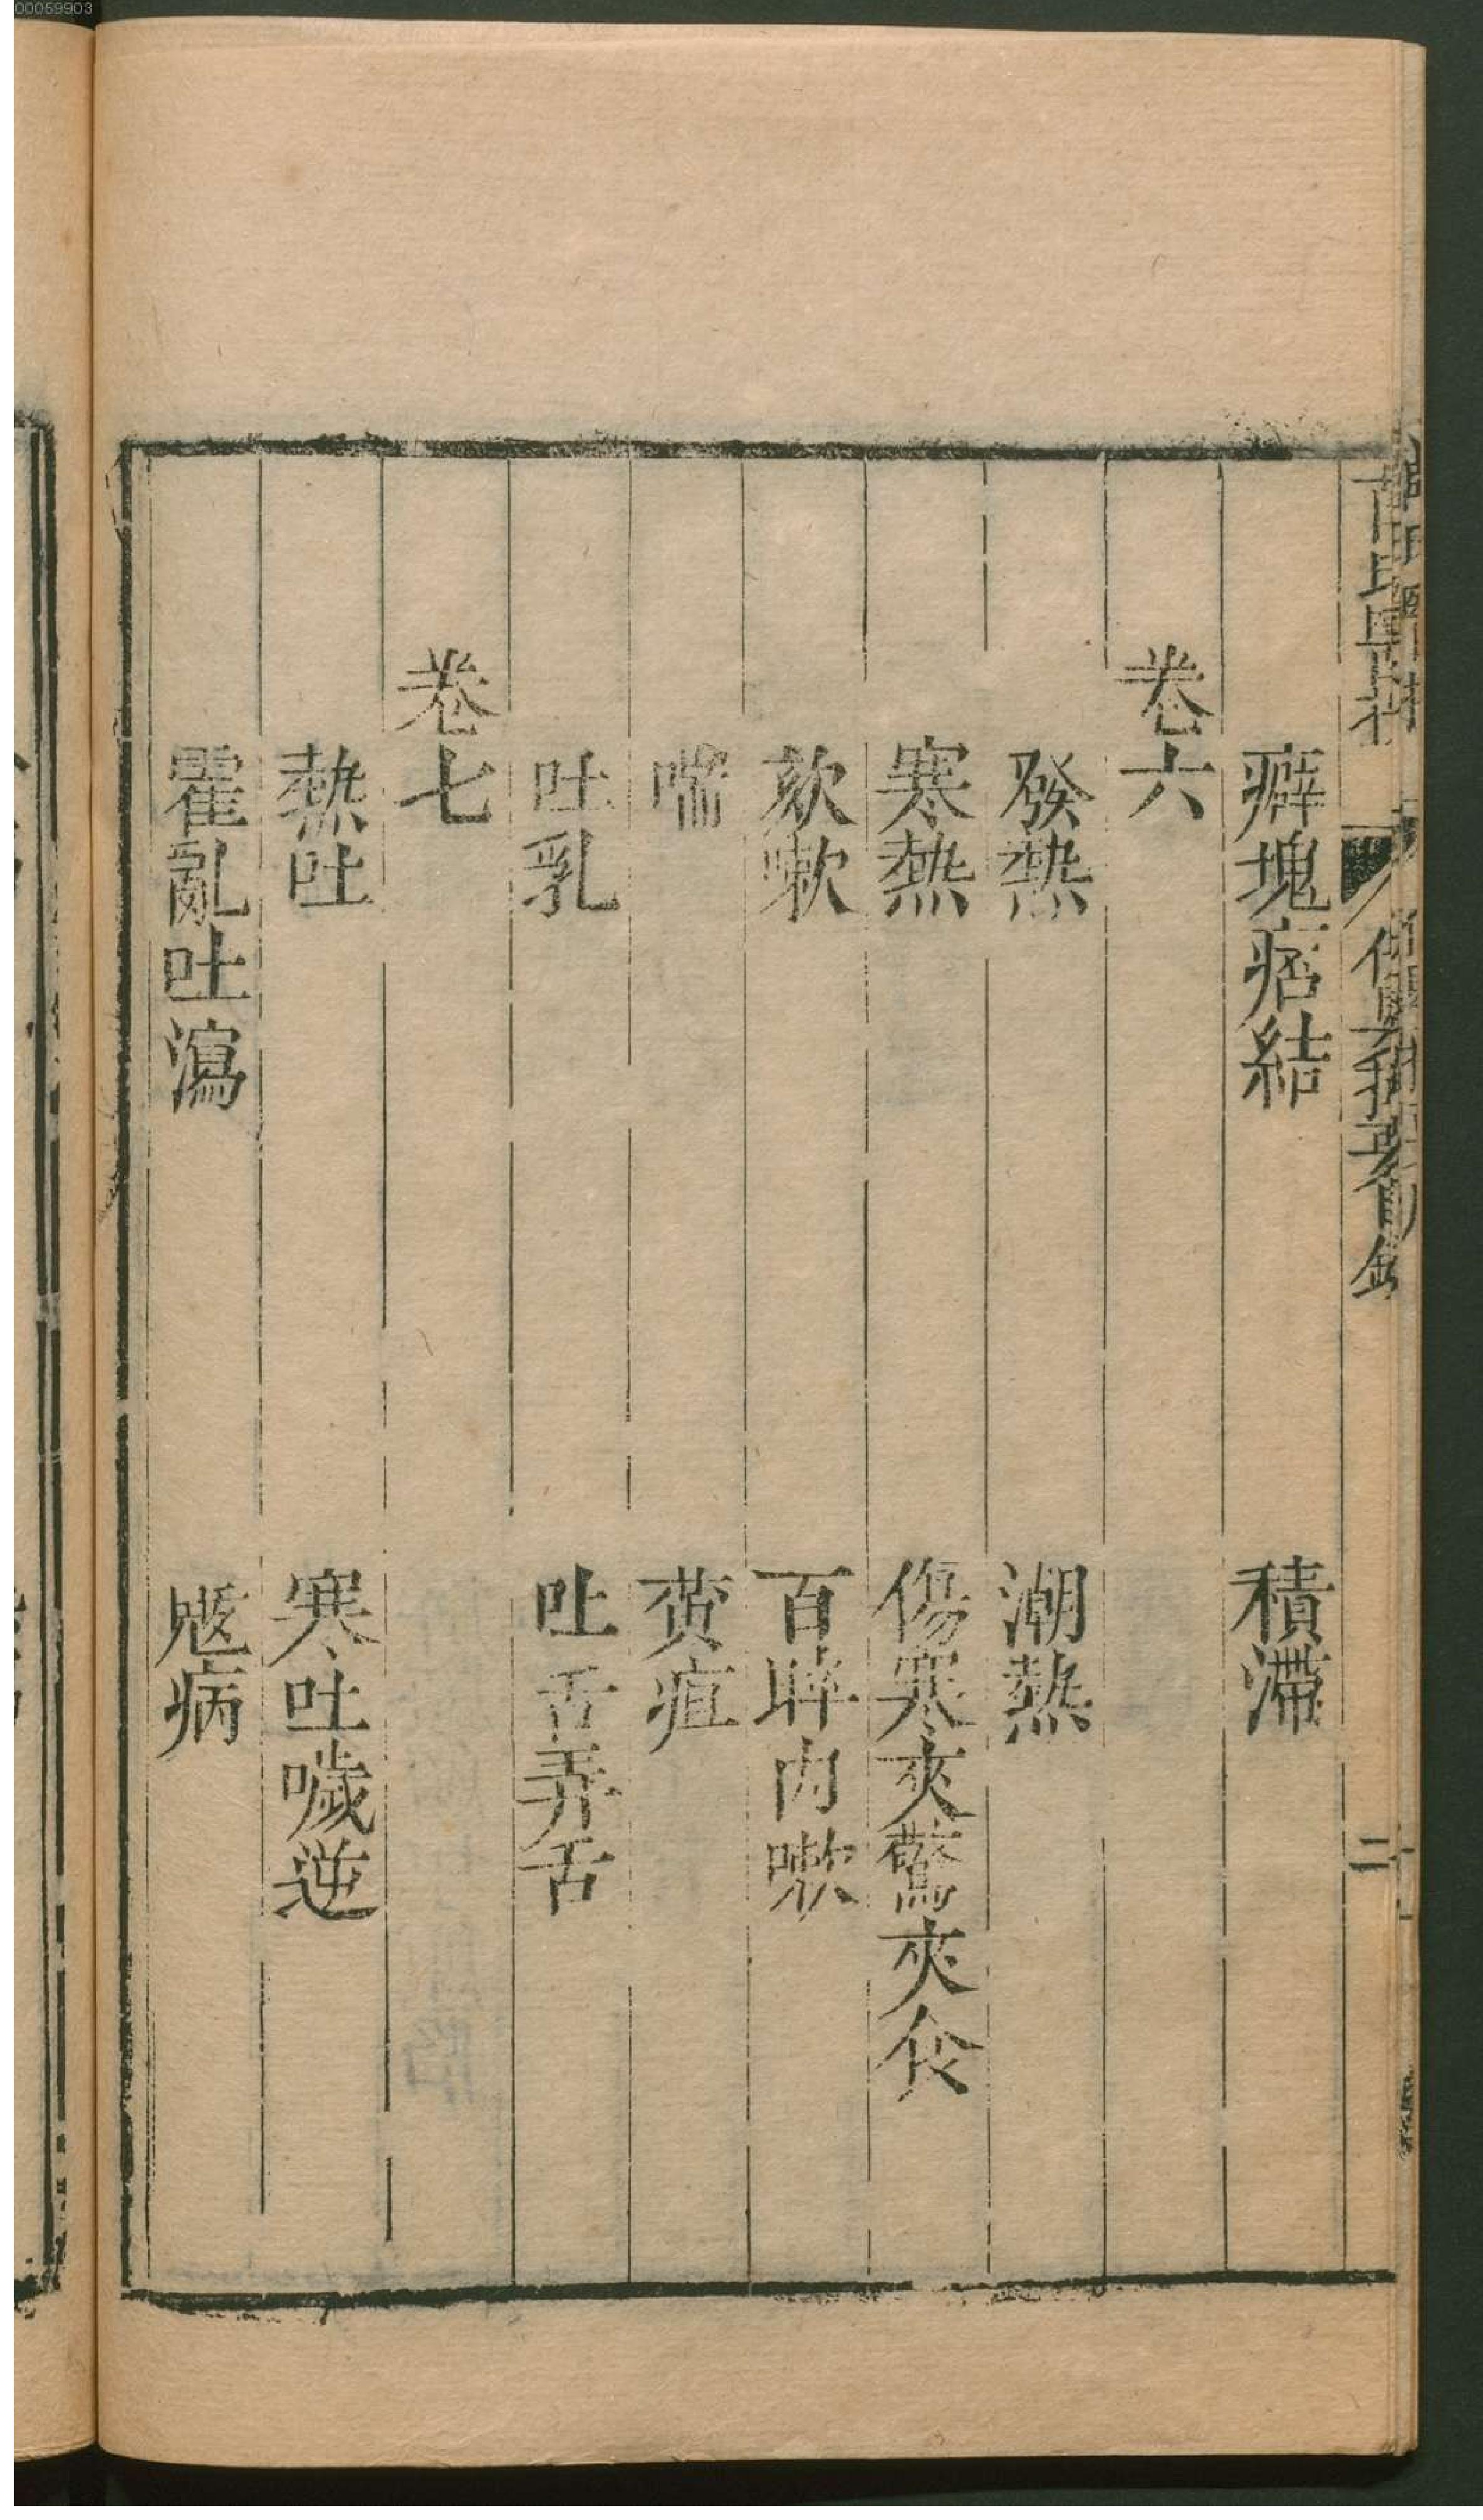 00059903
癖塊痞結　積滯
卷六
發熱　潮熱
寒熱　傷寒夾驚夾食
欬嗽　百晬內嗽
喘　黄疸
吐乳　吐舌弄舌
卷七
熱吐　寒吐噦逆
霍亂吐瀉　魃病
保嬰撮要目錄
二